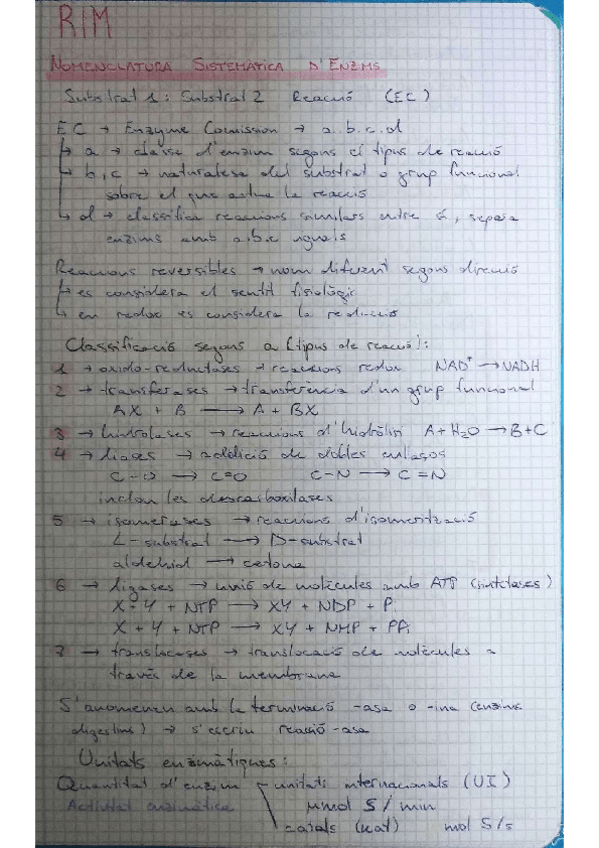 RIM
NOMENCLATURA SISTEMÀTICA D'ENZIMS
Substrat 1 : Substrat 2 Reacció (EC)
EC → Enzyme Comission → a.b.c.d
↳ a → classe d'enzim segons el tipus de reacció
↳ b, c → naturalesa del substrat o grup funcional
sobre el que actua la reacció
↳ d → classifica reaccions similars entre sí, separa
enzims amb a.b.c iguals
Reaccions reversibles → nom diferent segons direcció
↳ es considera el sentit fisiològic
↳ en redox es considera la reducció
Classificació segons a (tipus de reacció):
1 → oxido-reductases → reaccions redox NAD⁺ → NADH
2 → transferases → transferència d'un grup funcional
AX + B → A + BX
3 → hidrolases → reaccions d'hidròlisi A + H₂O → B + C
4 → liases → addició de dobles enllaços
C-O → C=O C-N → C=N
inclou les descarboxilases
5 → isomerases → reaccions d'isomerització
L-substrat → D-substrat
aldehid → cetona
6 → ligases → unió de molècules amb ATP (sintetases)
X + Y + NTP → XY + NDP + Pi
X + Y + NTP → XY + NMP + PPi
7 → translocases → translocació de molècules a
través de la membrana
S'anomenen amb la terminació -asa o -ina (enzims
digestius) → s'escriu reacció-asa
Unitats enzimàtiques:
Quantitat d'enzim unitats internacionals (UI)
Activitat enzimàtica μmol S / min
catals (kat) mol S/s